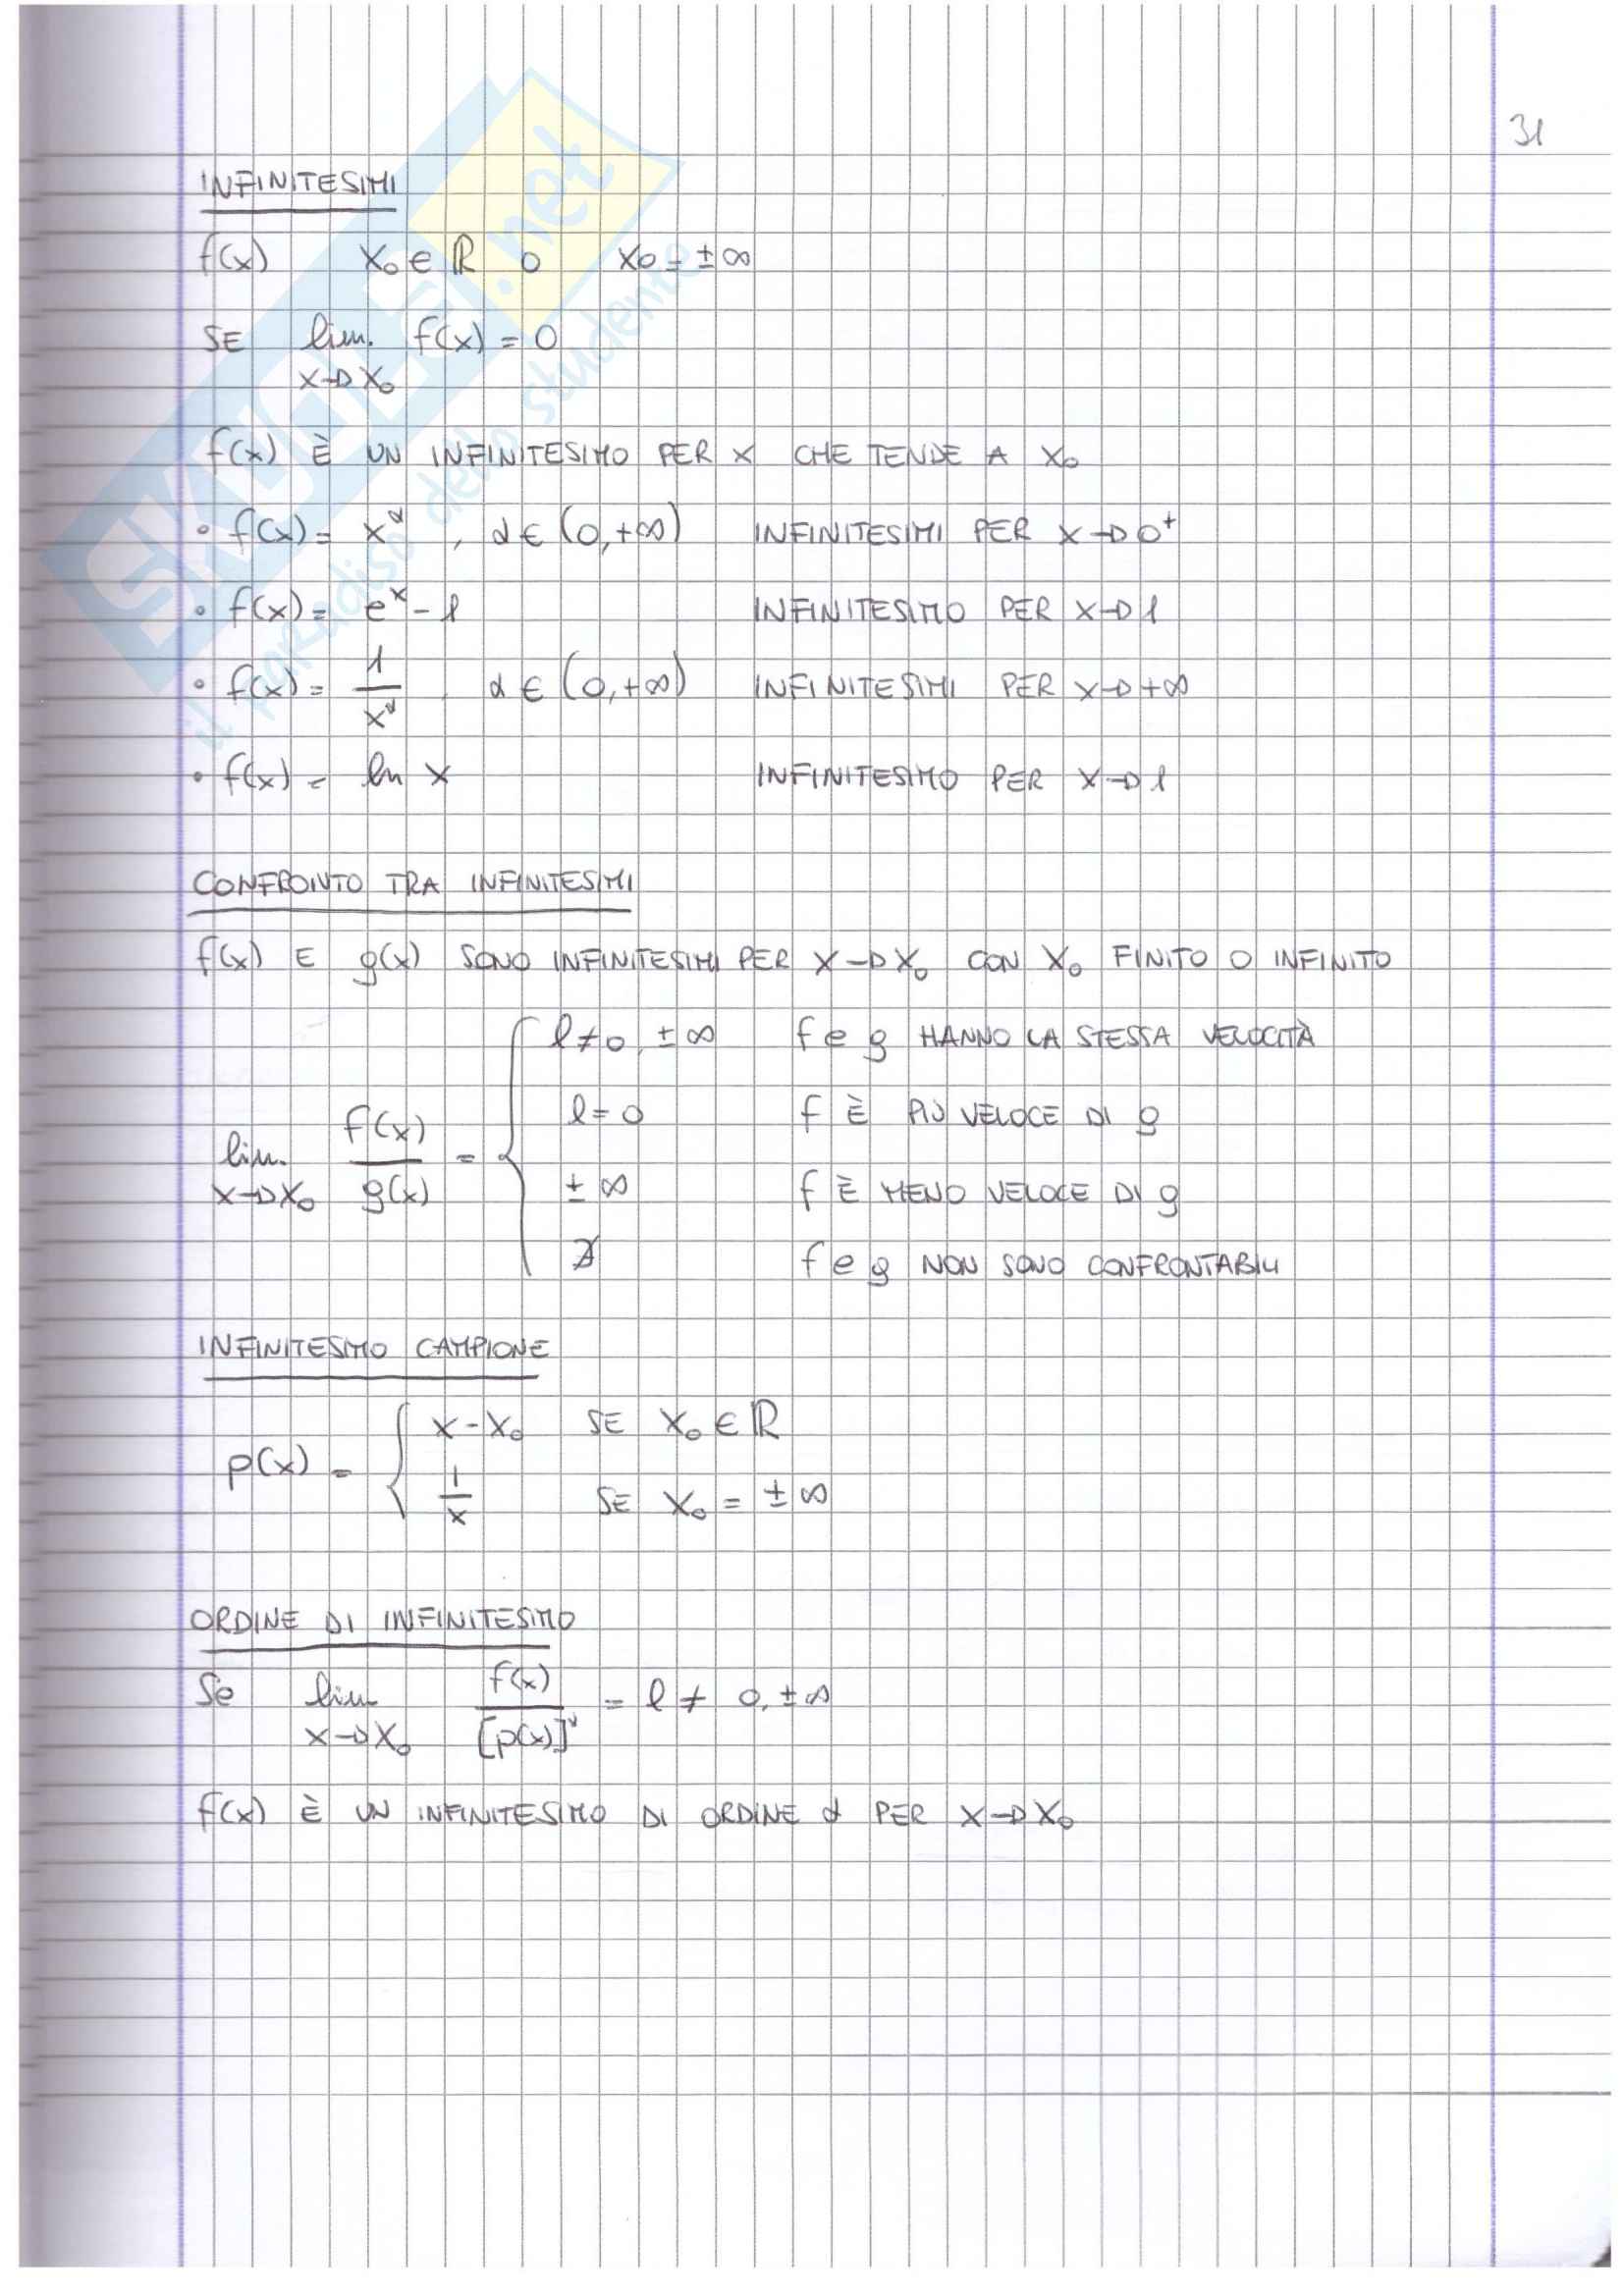 31
INFINITESIMI
f(x) x₀ ∈ ℝ o x₀ = ±∞
SE lim. f(x) = 0
x→x₀
f(x) È UN INFINITESIMO PER x CHE TENDE A x₀
• f(x) = x^α , α ∈ (0,+∞) INFINITESIMI PER x→0⁺
• f(x) = e^x - 1 INFINITESIMO PER x→1
• f(x) = 1/x^α , α ∈ (0,+∞) INFINITESIMI PER x→+∞
• f(x) = ln x INFINITESIMO PER x→1
CONFRONTO TRA INFINITESIMI
f(x) E g(x) SONO INFINITESIMI PER x→x₀ CON x₀ FINITO O INFINITO
lim. x→x₀ f(x)/g(x) = {
l≠0, ±∞ f e g HANNO LA STESSA VELOCITÀ
l=0 f È PIÙ VELOCE DI g
±∞ f È MENO VELOCE DI g
∄ f e g NON SONO CONFRONTABILI
INFINITESIMO CAMPIONE
p(x) = {
x-x₀ SE x₀ ∈ ℝ
1/x SE x₀ = ±∞
ORDINE DI INFINITESIMO
Se lim x→x₀ f(x)/[p(x)]^α = l ≠ 0, ±∞
f(x) È UN INFINITESIMO DI ORDINE α PER x→x₀
SKUOLA.net
il paradiso dello studente